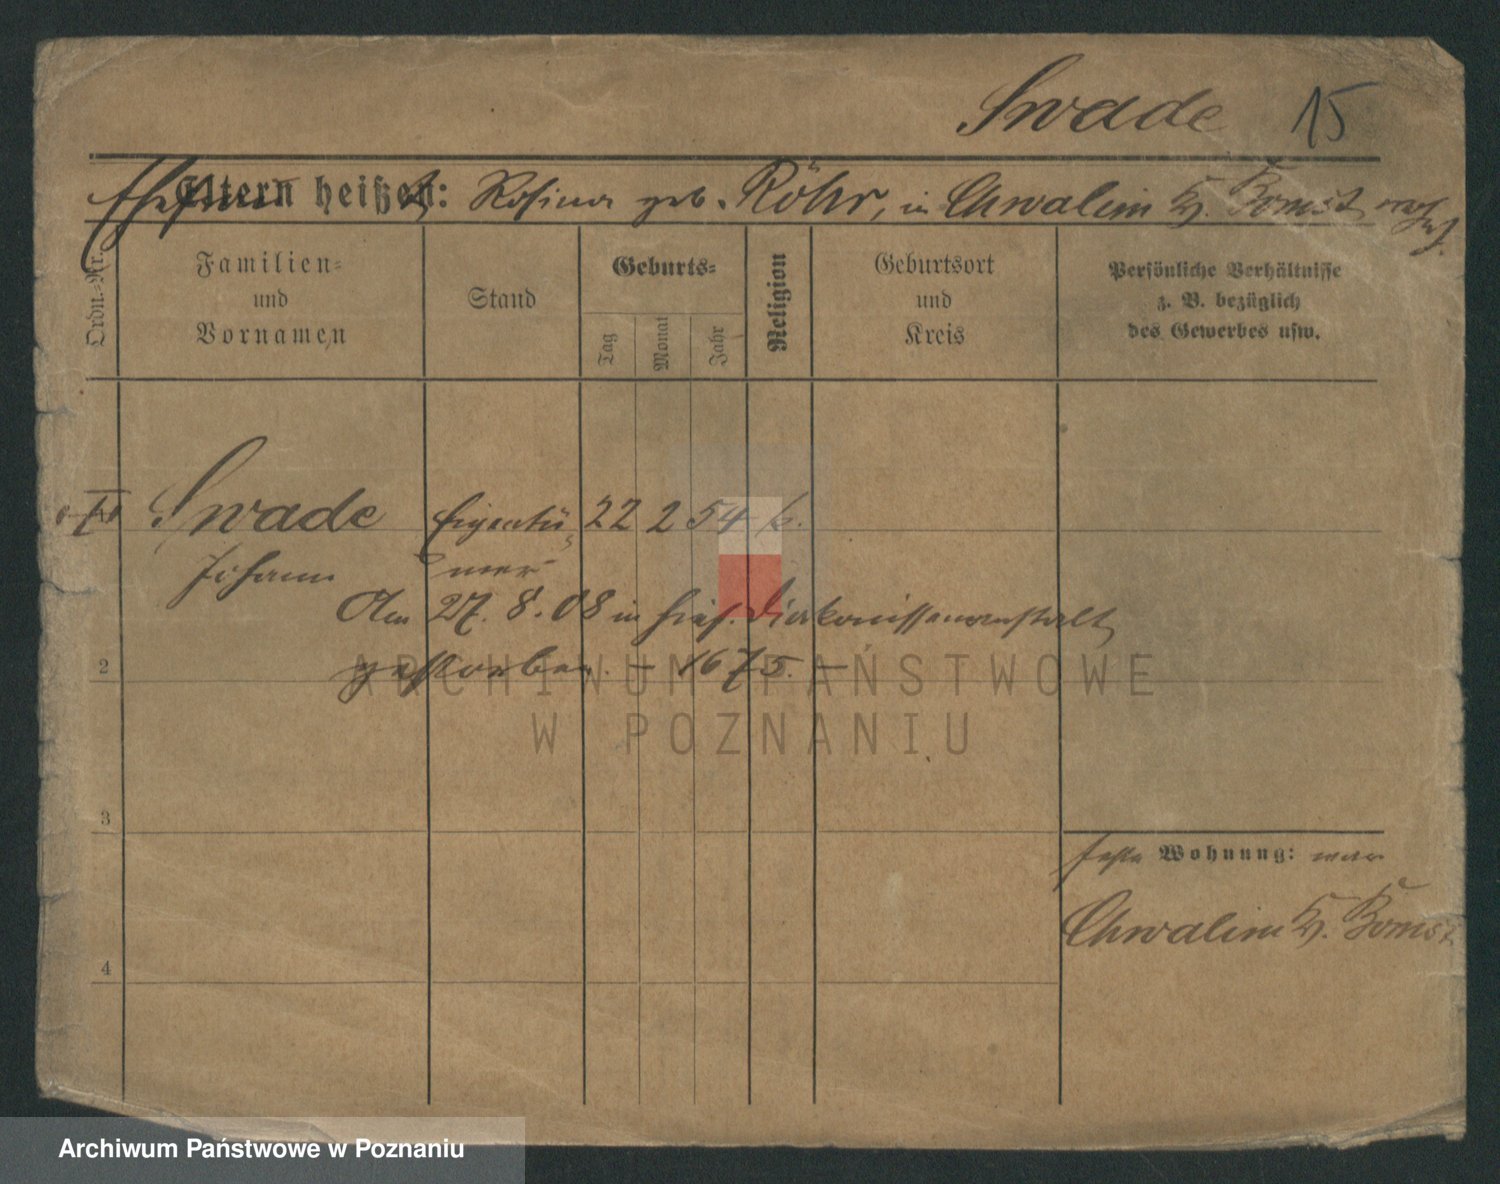 Swade 15
Eltern heißen: Rosina geb. Röhr, in Chwalim Kr. Bomst
Ordn.-Nr.
Familien-
und
Vornamen
Stand
Geburts-
Tag
Monat
Jahr
Religion
Geburtsort
und
Kreis
Persönliche Verhältnisse
z. B. bezüglich
des Gewerbes usw.
Swade Eigentü- 22 2 54 k.
Johann mer
Am 27. 8. 08 in hies. Diakonissenanstalt
2 gestorben. – 1675. –
ARCHIWUM PAŃSTWOWE
W POZNANIU
3
feste Wohnung: war
Chwalim Kr. Bomst
4
Archiwum Państwowe w Poznaniu